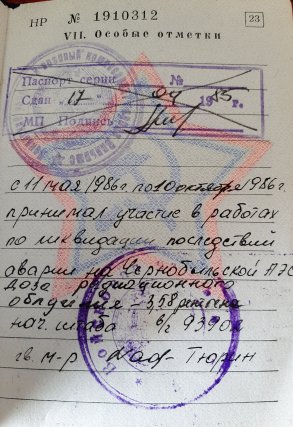 НР № 1910312 23
VII. Особые отметки
Паспорт серии №
Сдан „17“ 04 1985 г.
МП Подпись
с 11 мая 1986г. по 10 октября 1986г.
принимал участие в работах
по ликвидации последствий
аварии на Чернобыльской АЭС
доза радиационного
облучения - 3,58
нач. штаба в/ч
гв. м-р Тюрин